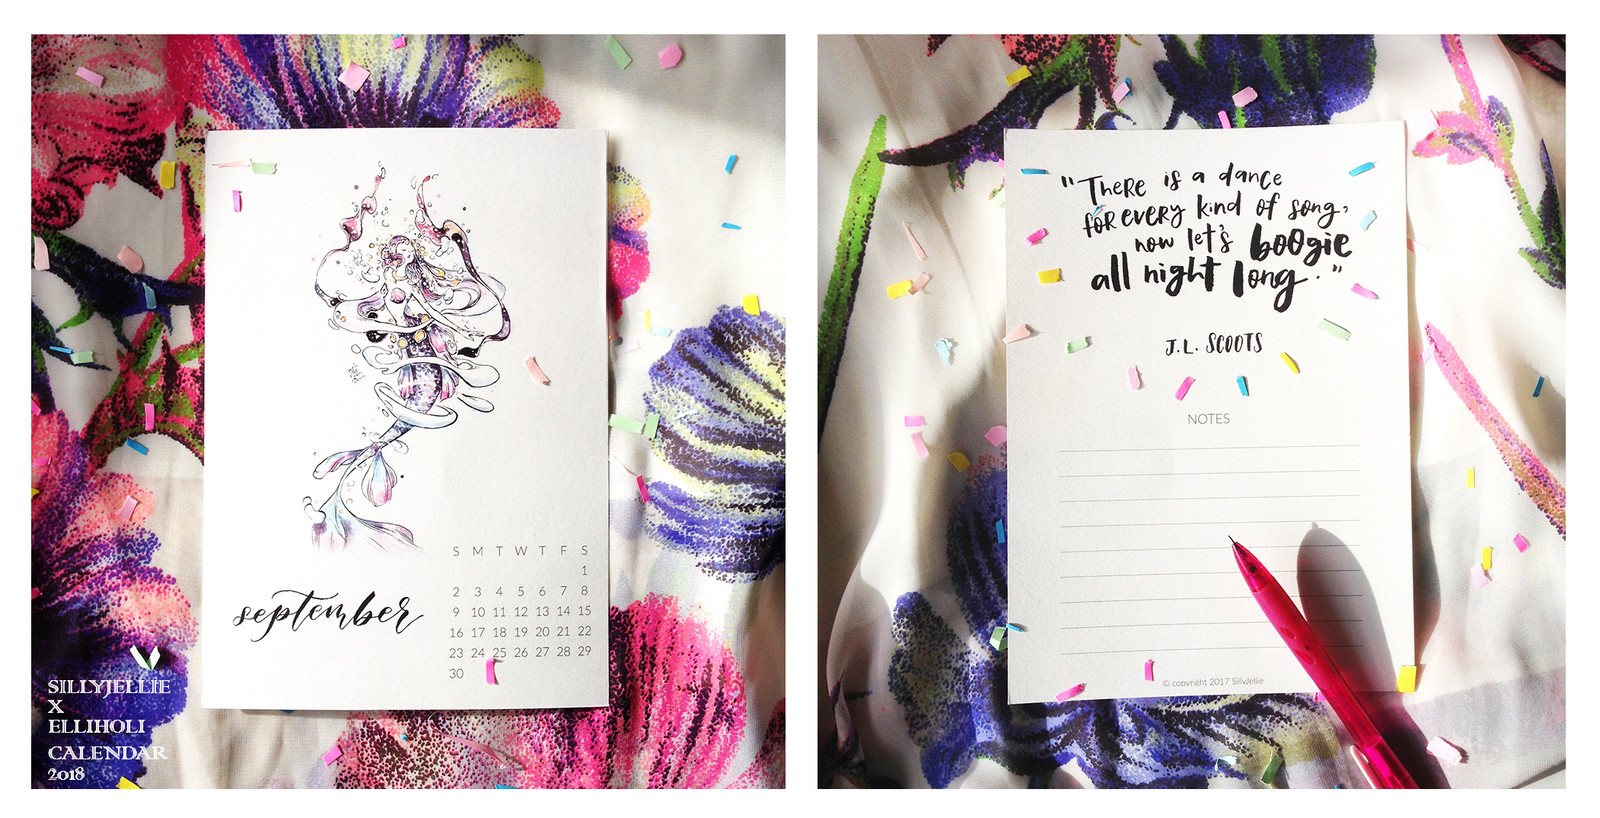 S M T W T F S
1
2 3 4 5 6 7 8
9 10 11 12 13 14 15
16 17 18 19 20 21 22
23 24 25 26 27 28 29
30
september
SILLYJELLIE
X
ELLIHOLI
CALENDAR
2018
"THERE is a dance
for every kind of song,
now let's boogie
all night long."
J.L. SCOOTS
NOTES
© copyright 2017 SillyJellie